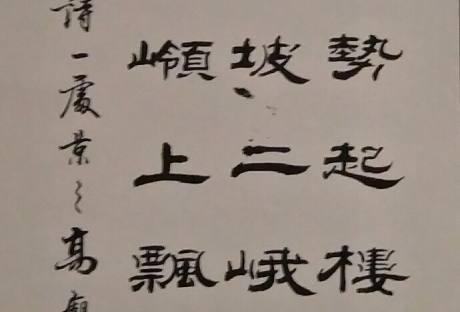 勢起樓
坡二峨
嶺上飄
詩一處景之高